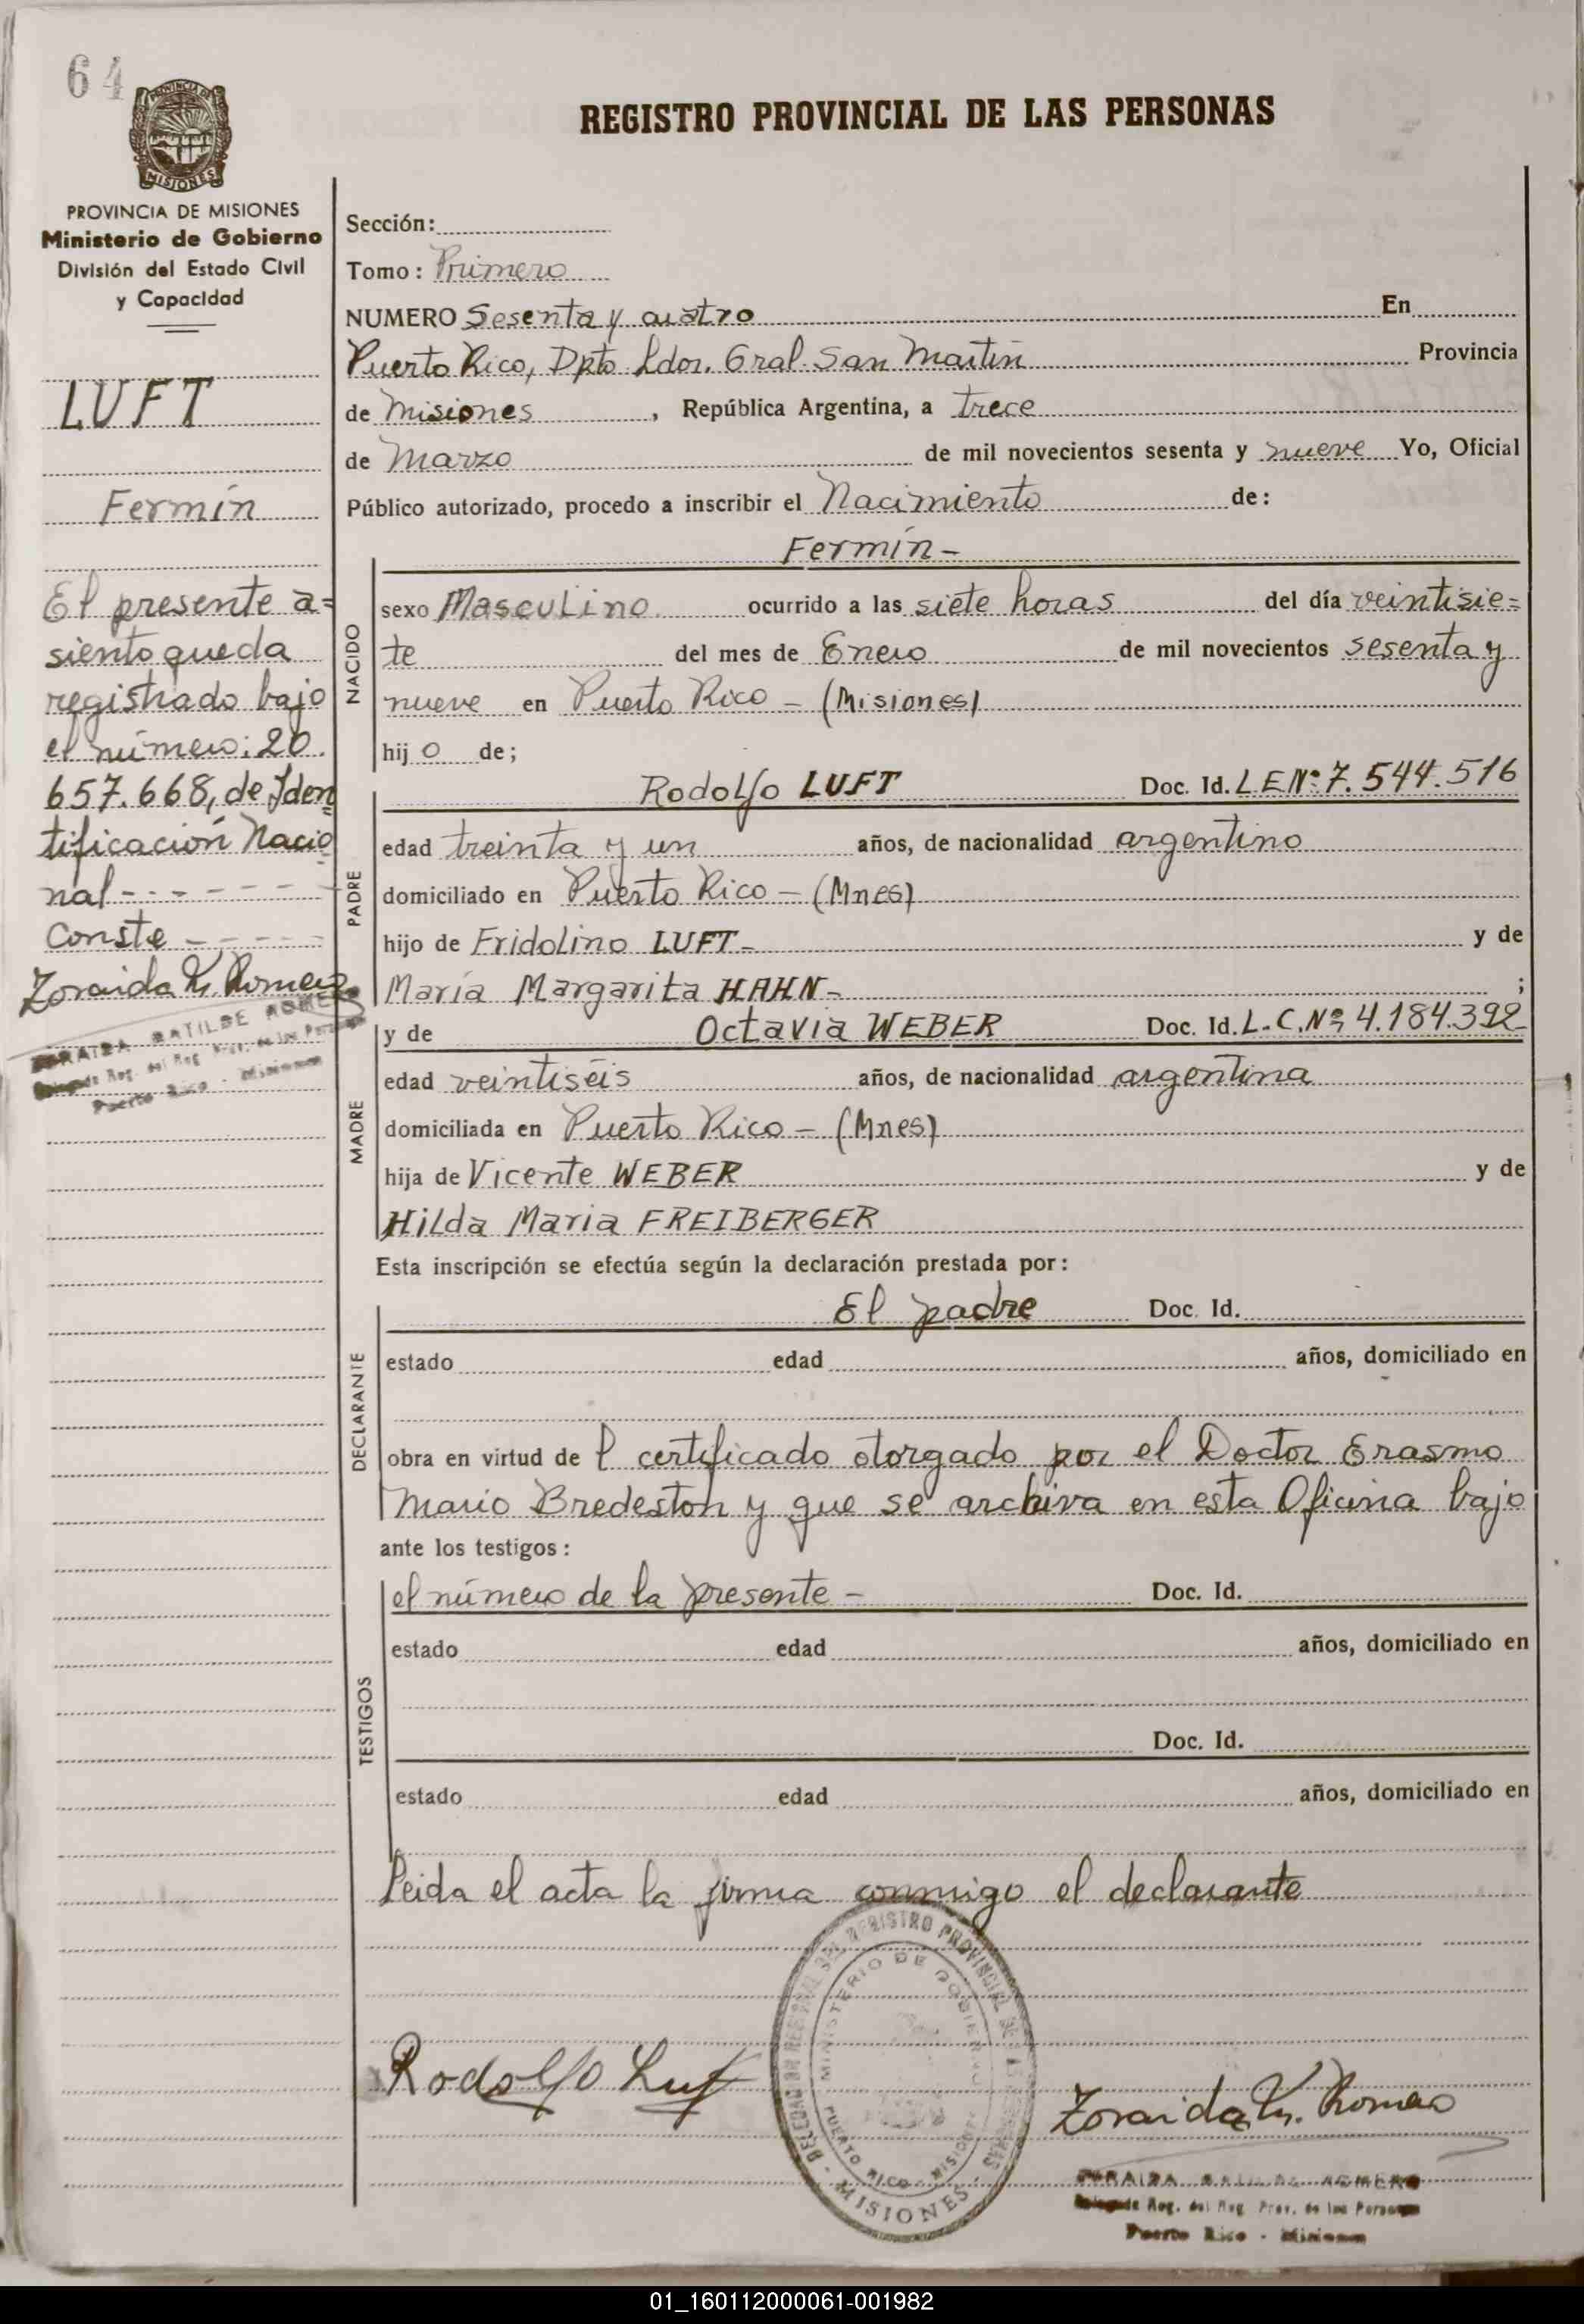 64
PROVINCIA DE
MISIONES
REGISTRO PROVINCIAL DE LAS PERSONAS
PROVINCIA DE MISIONES
Ministerio de Gobierno
División del Estado Civil
y Capacidad
LUFT
Fermín
El presente a=
siento queda
registrado bajo
el número: 20.
657.668, de Iden
tificación Nacio
nal - - - - - -
Conste - - - -
Zoraida M. Romero
ZORAIDA MATILDE ROMERO
Delegada Reg. del Reg. Prov. de las Personas
Puerto Rico - Misiones
Sección:
Tomo: Primero
NUMERO Sesenta y cuatro En
Puerto Rico, Dpto Ldor. Gral. San Martín Provincia
de Misiones, República Argentina, a trece
de Marzo de mil novecientos sesenta y nueve Yo, Oficial
Público autorizado, procedo a inscribir el Nacimiento de:
Fermín-
NACIDO
sexo Masculino ocurrido a las siete horas del día veintisie=
te del mes de Enero de mil novecientos sesenta y
nueve en Puerto Rico - (Misiones)
hijo de;
PADRE
Rodolfo LUFT Doc. Id. L.E.Nº: 7.544.516
edad treinta y un años, de nacionalidad argentino
domiciliado en Puerto Rico - (Mnes)
hijo de Fridolino LUFT- y de
María Margarita HAHN- ;
MADRE
y de Octavia WEBER Doc. Id. L.C.Nº 4.184.392
edad veintiséis años, de nacionalidad argentina
domiciliada en Puerto Rico - (Mnes)
hija de Vicente WEBER y de
Hilda Maria FREIBERGER
Esta inscripción se efectúa según la declaración prestada por:
DECLARANTE
El padre Doc. Id.
estado edad años, domiciliado en
obra en virtud de l certificado otorgado por el Doctor Erasmo
Mario Bredeston y que se archiva en esta Oficina bajo
ante los testigos:
TESTIGOS
el número de la presente - Doc. Id.
estado edad años, domiciliado en
Doc. Id.
estado edad años, domiciliado en
Leida el acta la firma conmigo el declarante
Rodolfo Luft
REGISTRO PROVINCIAL DE LAS PERSONAS
MINISTERIO DE GOBIERNO
PUERTO RICO - MISIONES
MISIONES
Zoraida M. Romero
ZORAIDA MATILDE ROMERO
Delegada Reg. del Reg. Prov. de las Personas
Puerto Rico - Misiones
01_160112000061-001982